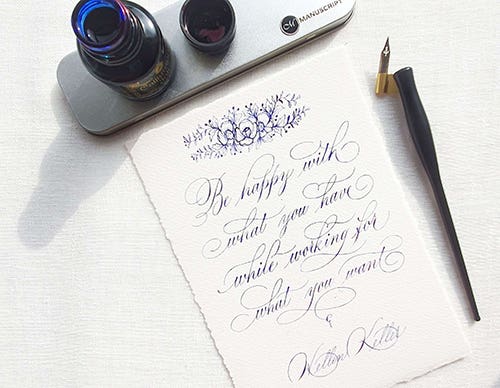 MANUSCRIPT
Be happy with
what you have
while working for
what you want